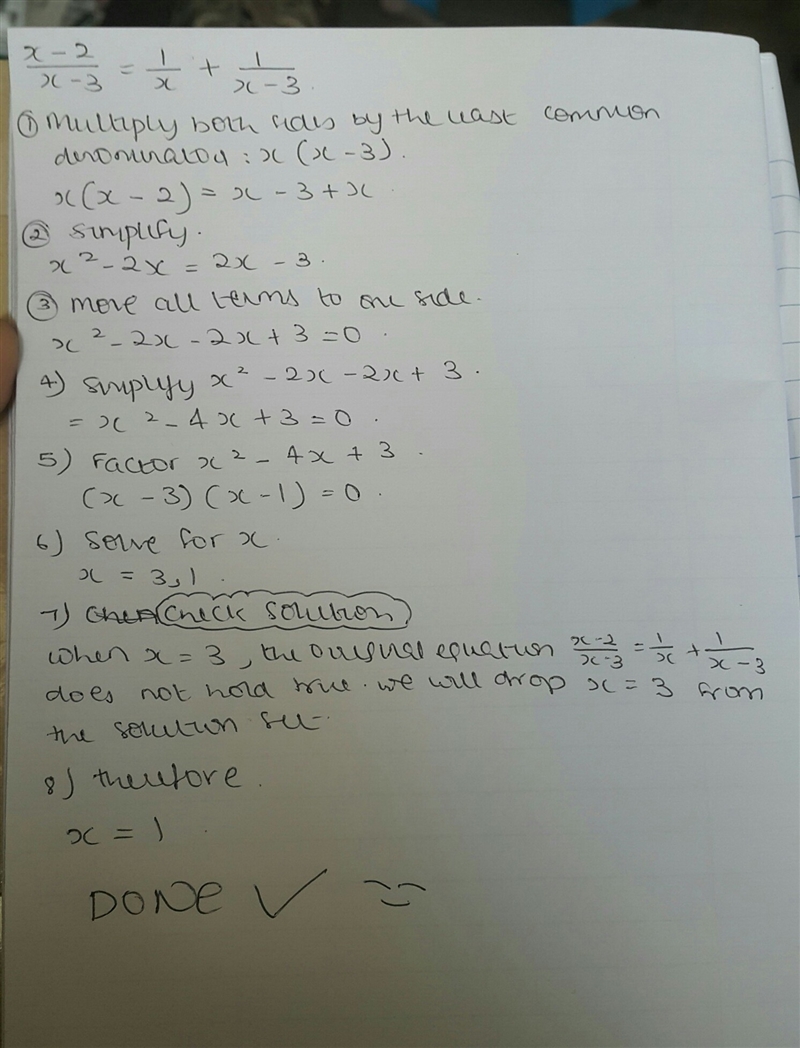 x-2/x-3 = 1/x + 1/x-3.
① Multiply both sides by the least common
denominator: x(x-3).
x(x-2) = x-3+x.
② Simplify.
x²-2x = 2x-3.
③ move all terms to one side.
x²-2x-2x+3=0.
4) Simplify x²-2x-2x+3.
= x²-4x+3=0.
5) Factor x²-4x+3.
(x-3)(x-1)=0.
6) Solve for x.
x = 3,1.
7) Check solution
When x=3, the original equation x-2/x-3 = 1/x + 1/x-3
does not hold true. we will drop x=3 from
the solution set.
8) therefore.
x = 1.
DONE ✓